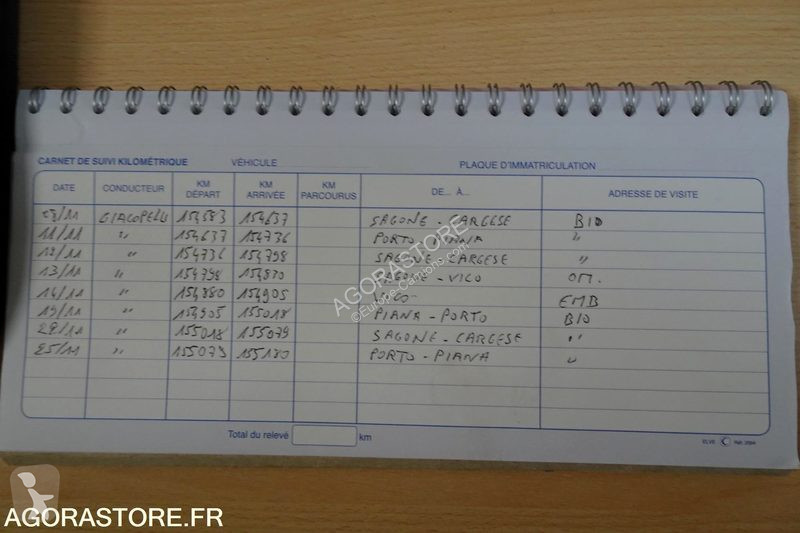 CARNET DE SUIVI KILOMÉTRIQUE VÉHICULE PLAQUE D'IMMATRICULATION
DATE CONDUCTEUR KM DÉPART KM ARRIVÉE KM PARCOURUS DE... À... ADRESSE DE VISITE
/11 GIACOPELLI 154583 154637 SAGONE - CARGESE BIO
11/11 " 154637 154736 PORTO PIANA "
12/11 " 154736 154798 SAGONE - CARGESE "
13/11 " 154798 SAGONE - VICO OM.
14/11 " 154880 154905 VICO EMB
19/11 " 154905 155018 PIANA - PORTO BIO
22/11 " 155018 155079 SAGONE - CARGESE "
25/11 " 155079 155180 PORTO - PIANA "
Total du relevé km
ELVE Réf. 2094
AGORASTORE
©Europe-Camions.com
AGORASTORE.FR